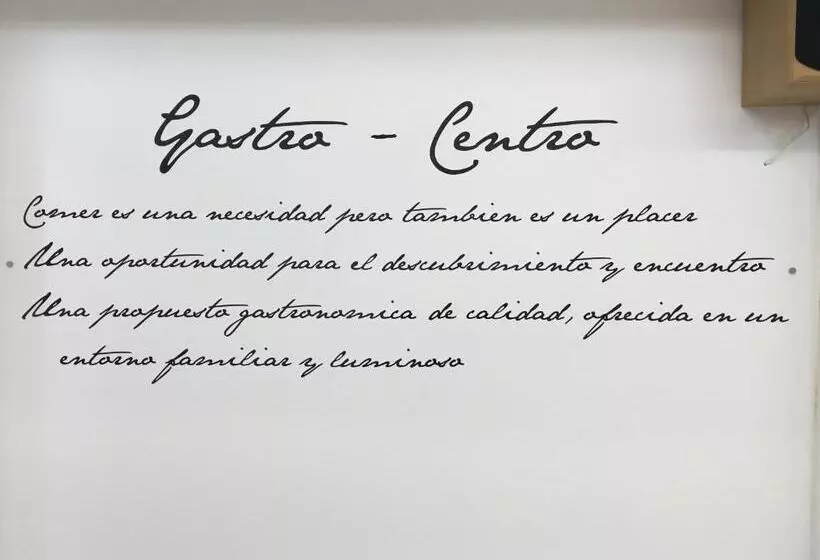 Gastro - Centro
Comer es una necesidad pero tambien es un placer
Una oportunidad para el descubrimiento y encuentro
Una propuesto gastronomica de calidad, ofrecida en un
entorno familiar y luminoso